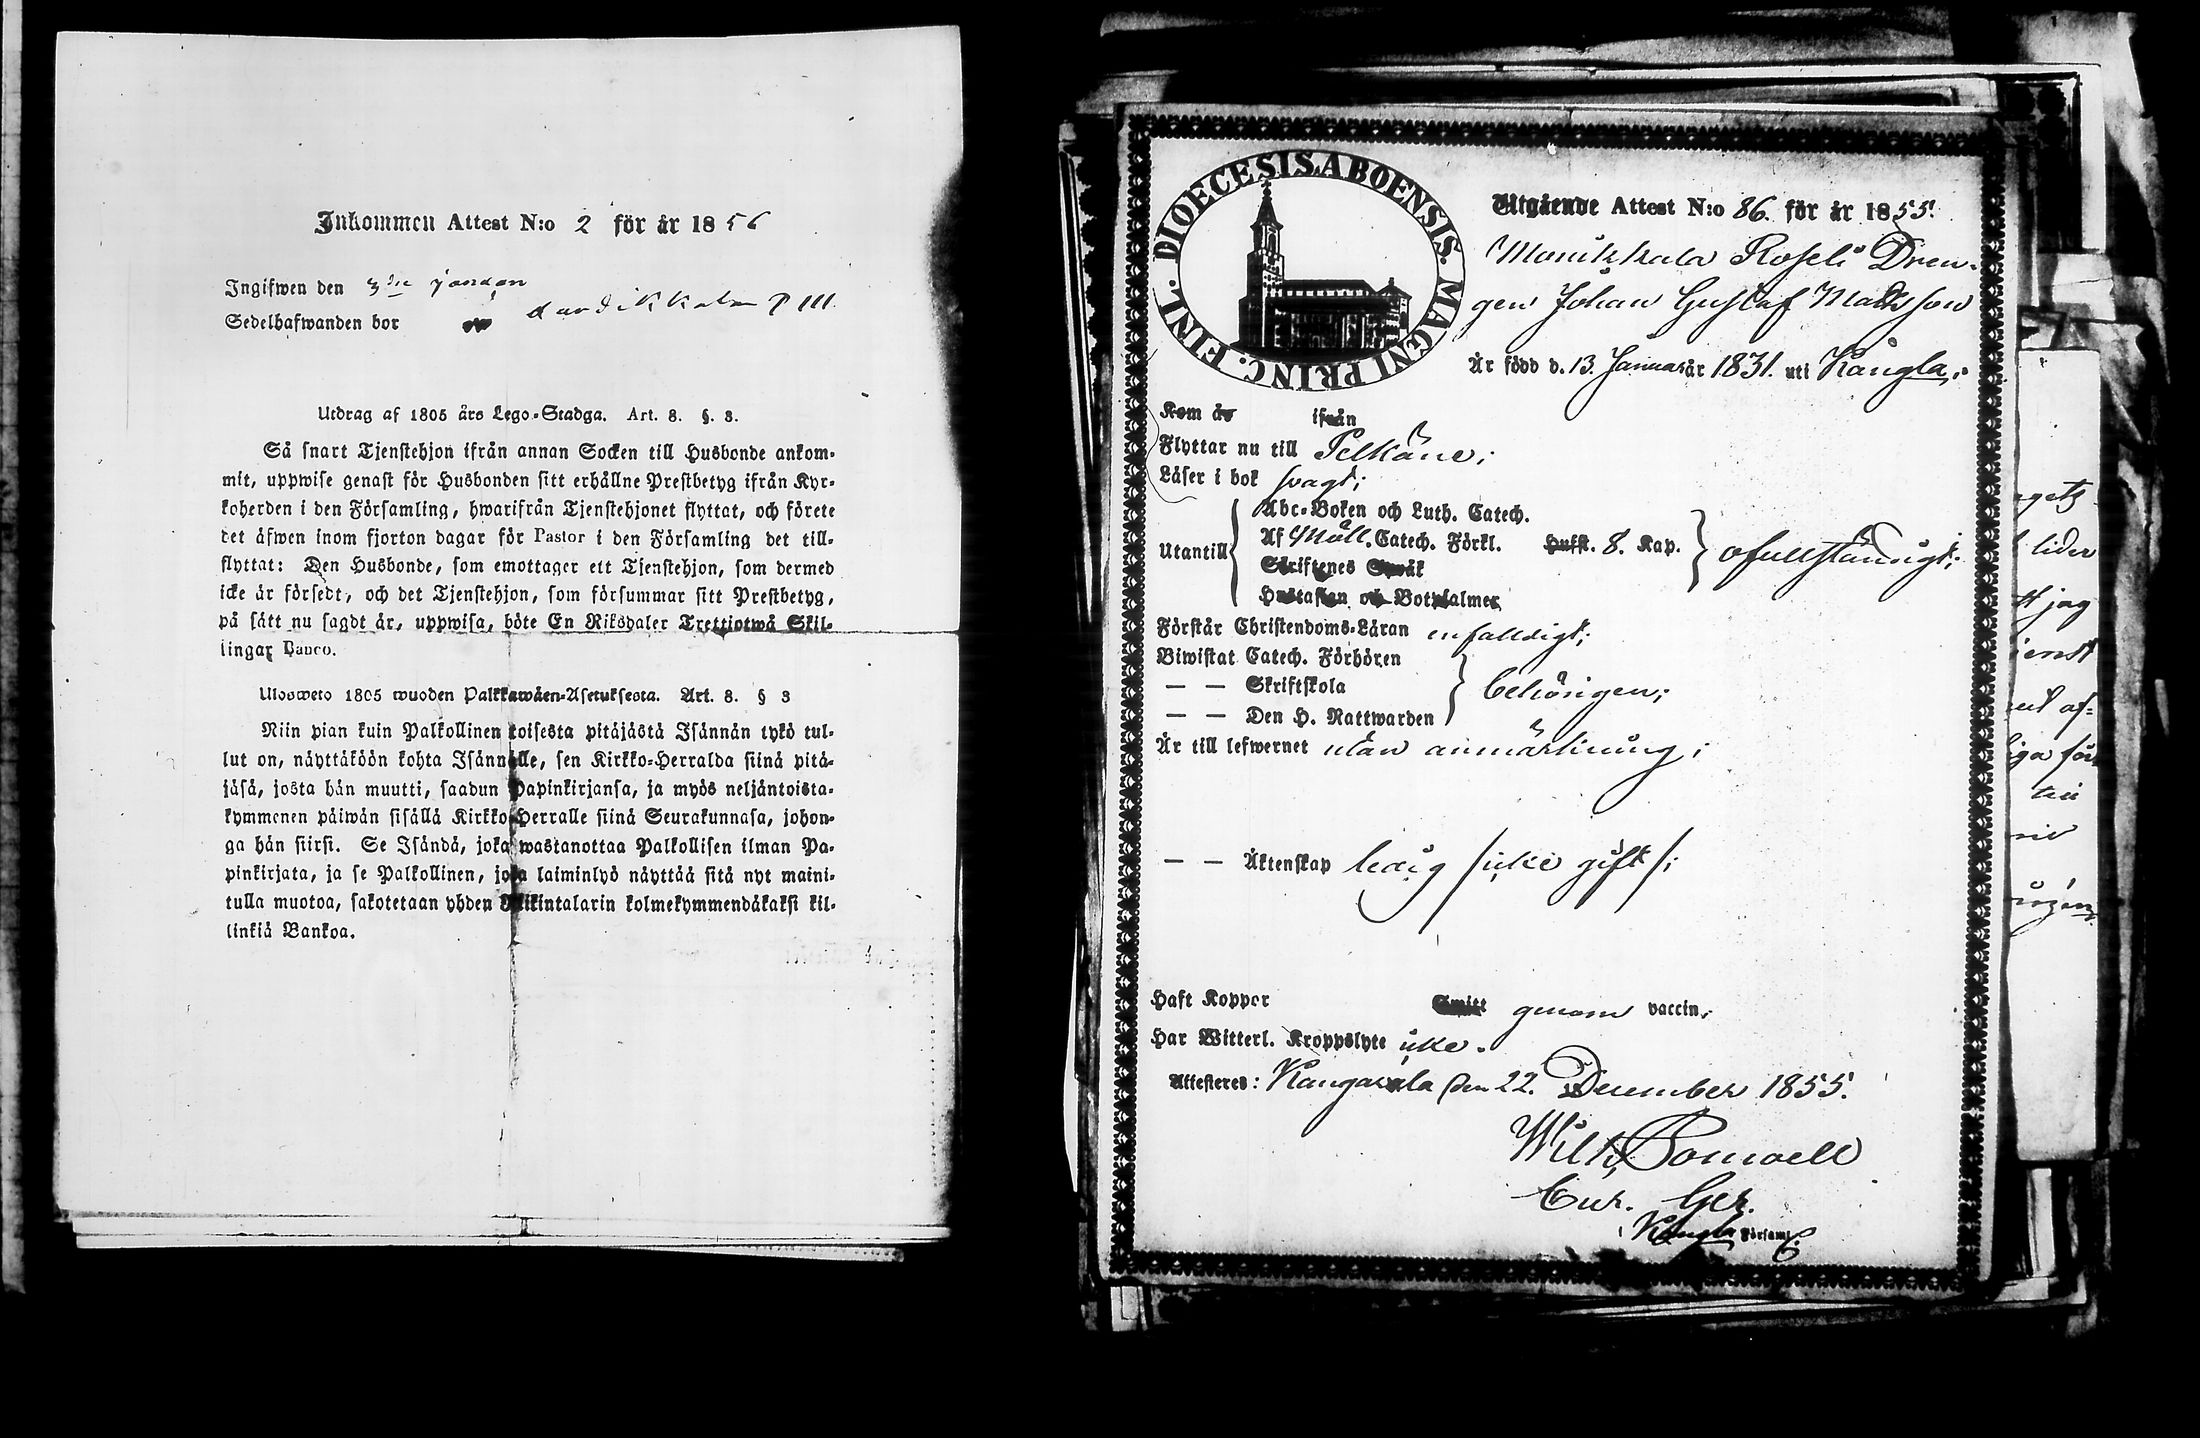 Inkommen Attest N:o 2 för år 1856
Ingifwen den 3die januari
Sedelhafwanden bor
Utdrag af 1805 års Lego-Stadga. Art. 8. §. 3.
Så snart Tjenstehjon ifrån annan Socken till Husbonde ankom-
mit, uppwise genast för Husbonden sitt erhållne Prestbetyg ifrån Kyr-
koherden i den Församling, hwarifrån Tjenstehjonet flyttat, och förete
det äfwen inom fjorton dagar för Pastor i den Församling det till-
flyttat: Den Husbonde, som emottager ett Tjenstehjon, som dermed
icke är försedt, och det Tjenstehjon, som försummar sitt Prestbetyg,
på sätt nu sagdt är, uppwisa, böte En Riksdaler Trettiotwå Skil-
lingar Banco.
Ulosweto 1805 wuoden Palkkawäen-Asetuksesta. Art. 8. § 3
Niin pian kuin Palkollinen toisesta pitäjästä Isännän tykö tul-
lut on, näyttäköön kohta Isännälle, sen Kirkko-Herralda siinä pitä-
jäsä, josta hän muutti, saadun Papinkirjansa, ja myös neljäntoista-
kymmenen päiwän sisällä Kirkko-Herralle siinä Seurakunnasa, johon-
ga hän siirsi. Se Isändä, joka wastanottaa Palkollisen ilman Pa-
pinkirjata, ja se Palkollinen, joka laiminlyö näyttää sitä nyt maini-
tulla muotoa, sakotetaan yhden Riikintalarin kolmekymmendäkaksi kil-
linkiä Bankoa.
DIOECESIS ABOENSIS. MAGNI PRINC. FINL.
Utgående Attest N:o 86. för år 1855.
Dren-
gen Johan Gustaf Matsson
Är född d. 13. Januari år 1831. uti Kangla;
Kom år ifrån
Flyttar nu till Pelkäne;
Läser i bok svagt;
Utantill
Abc-Boken och Luth. Catech.
Af Möll. Catech. Förkl. Husst. 8. Kap. ofullständigt;
Skriftenes Språk
Hustaflan och Botpsalmer
Förstår Christendoms-Läran enfaldigt;
Biwistat Catech. Förhören
— — Skriftskola behörigen;
— — Den H. Nattwarden
Är till lefwernet utan anmärkning;
— — Äktenskap ledig /icke gift/;
Haft Koppor Smitt genom vaccin;
Har Witterl. Kroppslyte icke.
Attesteres: Kangasala den 22. December 1855.
Kangla Församl.